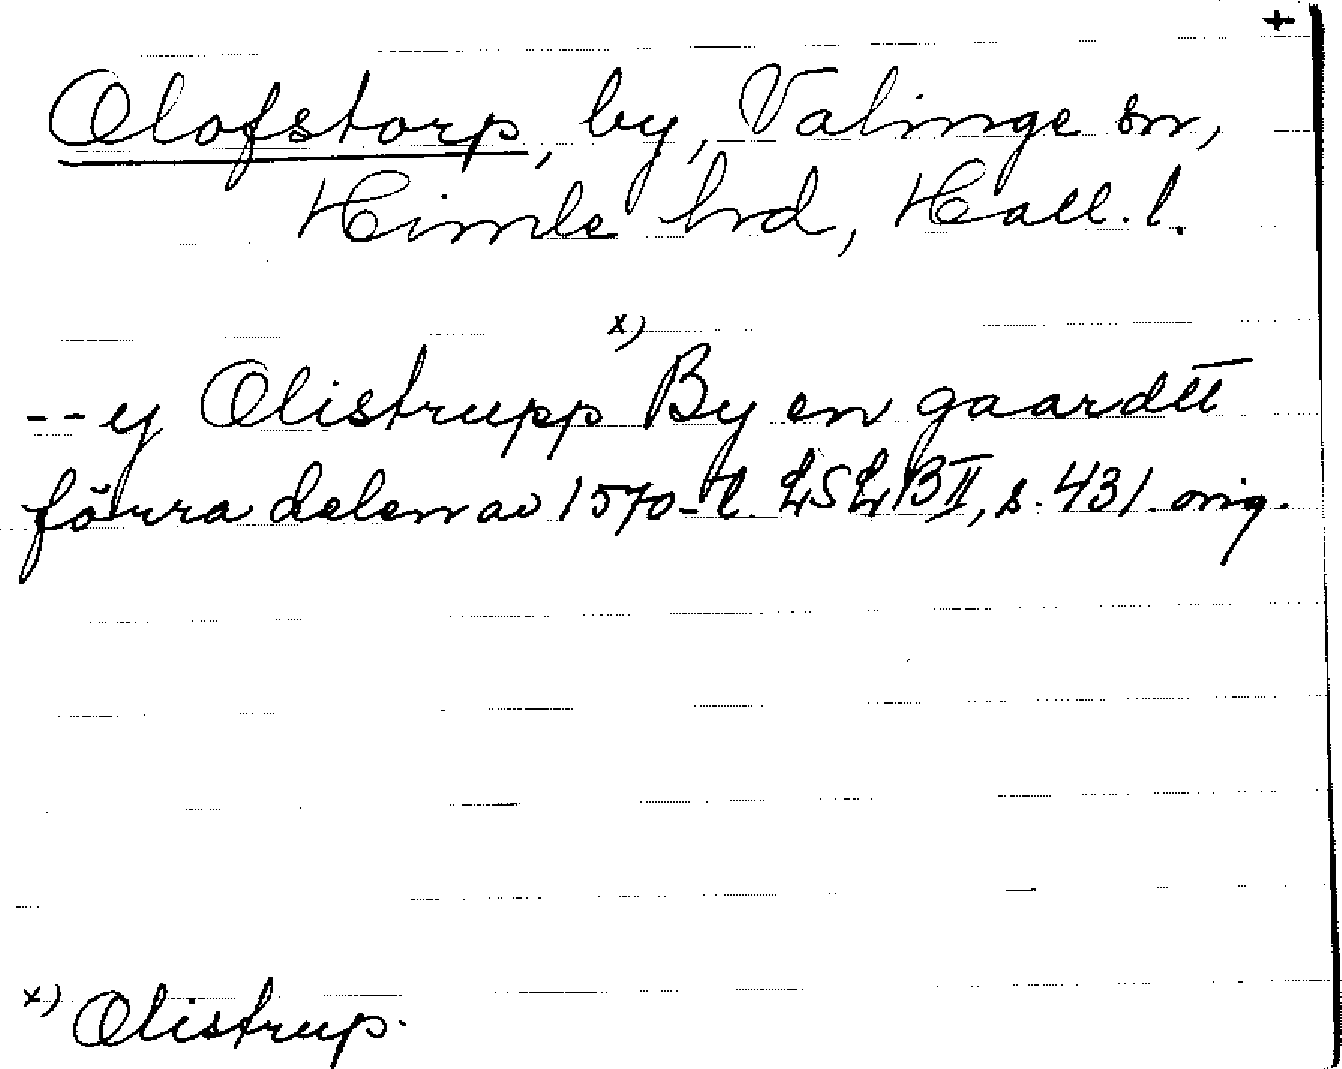 +
Olofstorp, by, Valinge sn,
Himle hrd, Hall. l.
x)
-- y Olistrupp By en gaardtt
förra delen av 1570-t. LSLB II, s. 431 orig.
x) Olistrup.